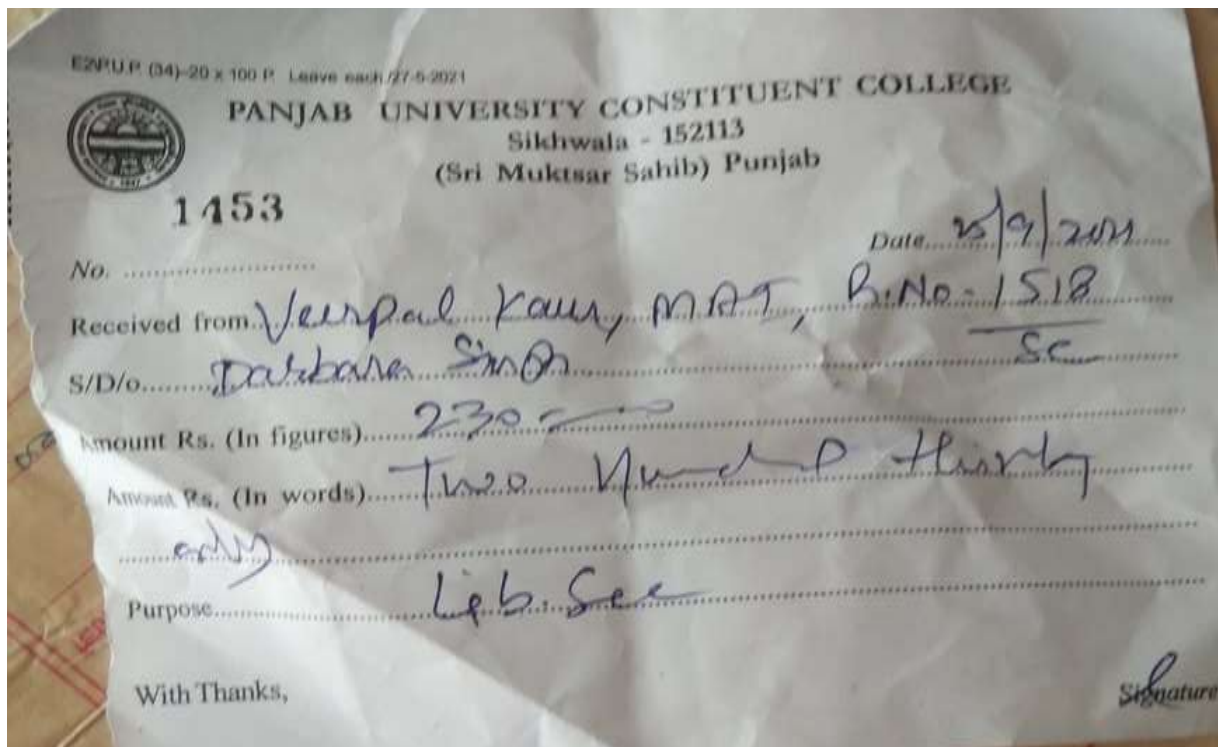 E2/P.U.P. (34)-20 x 100 P. Leave each/27-5-2021
PANJAB UNIVERSITY CONSTITUENT COLLEGE
Sikhwala - 152113
(Sri Muktsar Sahib) Punjab
1453
Date 25/9/2021
No.
Received from Veerpal Kaur, MAI, R.No-1518
S/D/o Darbara Singh SC
Amount Rs. (In figures) 230
Amount Rs. (In words) Two Hundred Thirty
only
Purpose Lib. Sec
With Thanks,
Signature